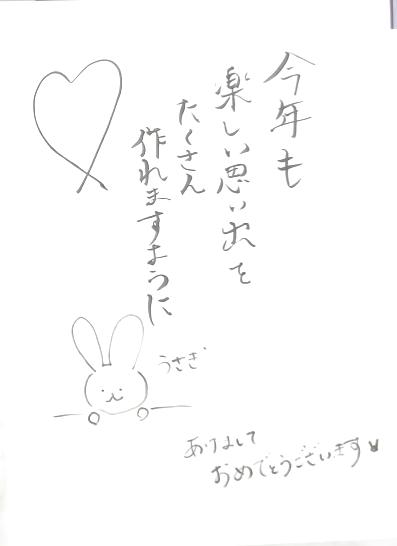 今年も
楽しい思い出を
たくさん
作れますように
うさぎ
あけまして
おめでとうございます